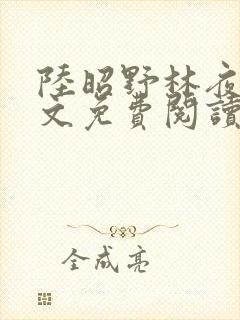 陸昭野林夜
文免費閱讀
全成亮